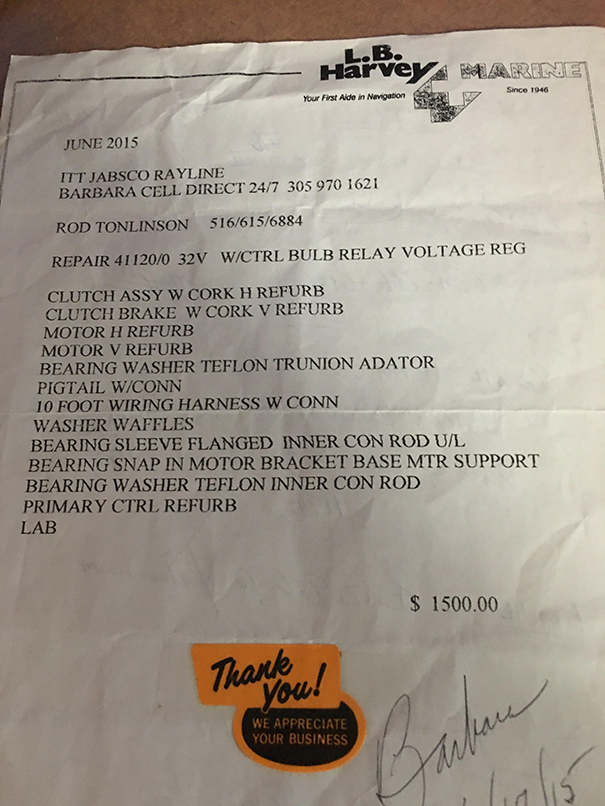 L.B.
Harvey MARINE
Your First Aide in Navigation
Since 1946
JUNE 2015
ITT JABSCO RAYLINE
BARBARA CELL DIRECT 24/7 305 970 1621
ROD TONLINSON 516/615/6884
REPAIR 41120/0 32V W/CTRL BULB RELAY VOLTAGE REG
CLUTCH ASSY W CORK H REFURB
CLUTCH BRAKE W CORK V REFURB
MOTOR H REFURB
MOTOR V REFURB
BEARING WASHER TEFLON TRUNION ADATOR
PIGTAIL W/CONN
10 FOOT WIRING HARNESS W CONN
WASHER WAFFLES
BEARING SLEEVE FLANGED INNER CON ROD U/L
BEARING SNAP IN MOTOR BRACKET BASE MTR SUPPORT
BEARING WASHER TEFLON INNER CON ROD
PRIMARY CTRL REFURB
LAB
$ 1500.00
Thank
You!
WE APPRECIATE
YOUR BUSINESS
Barbara